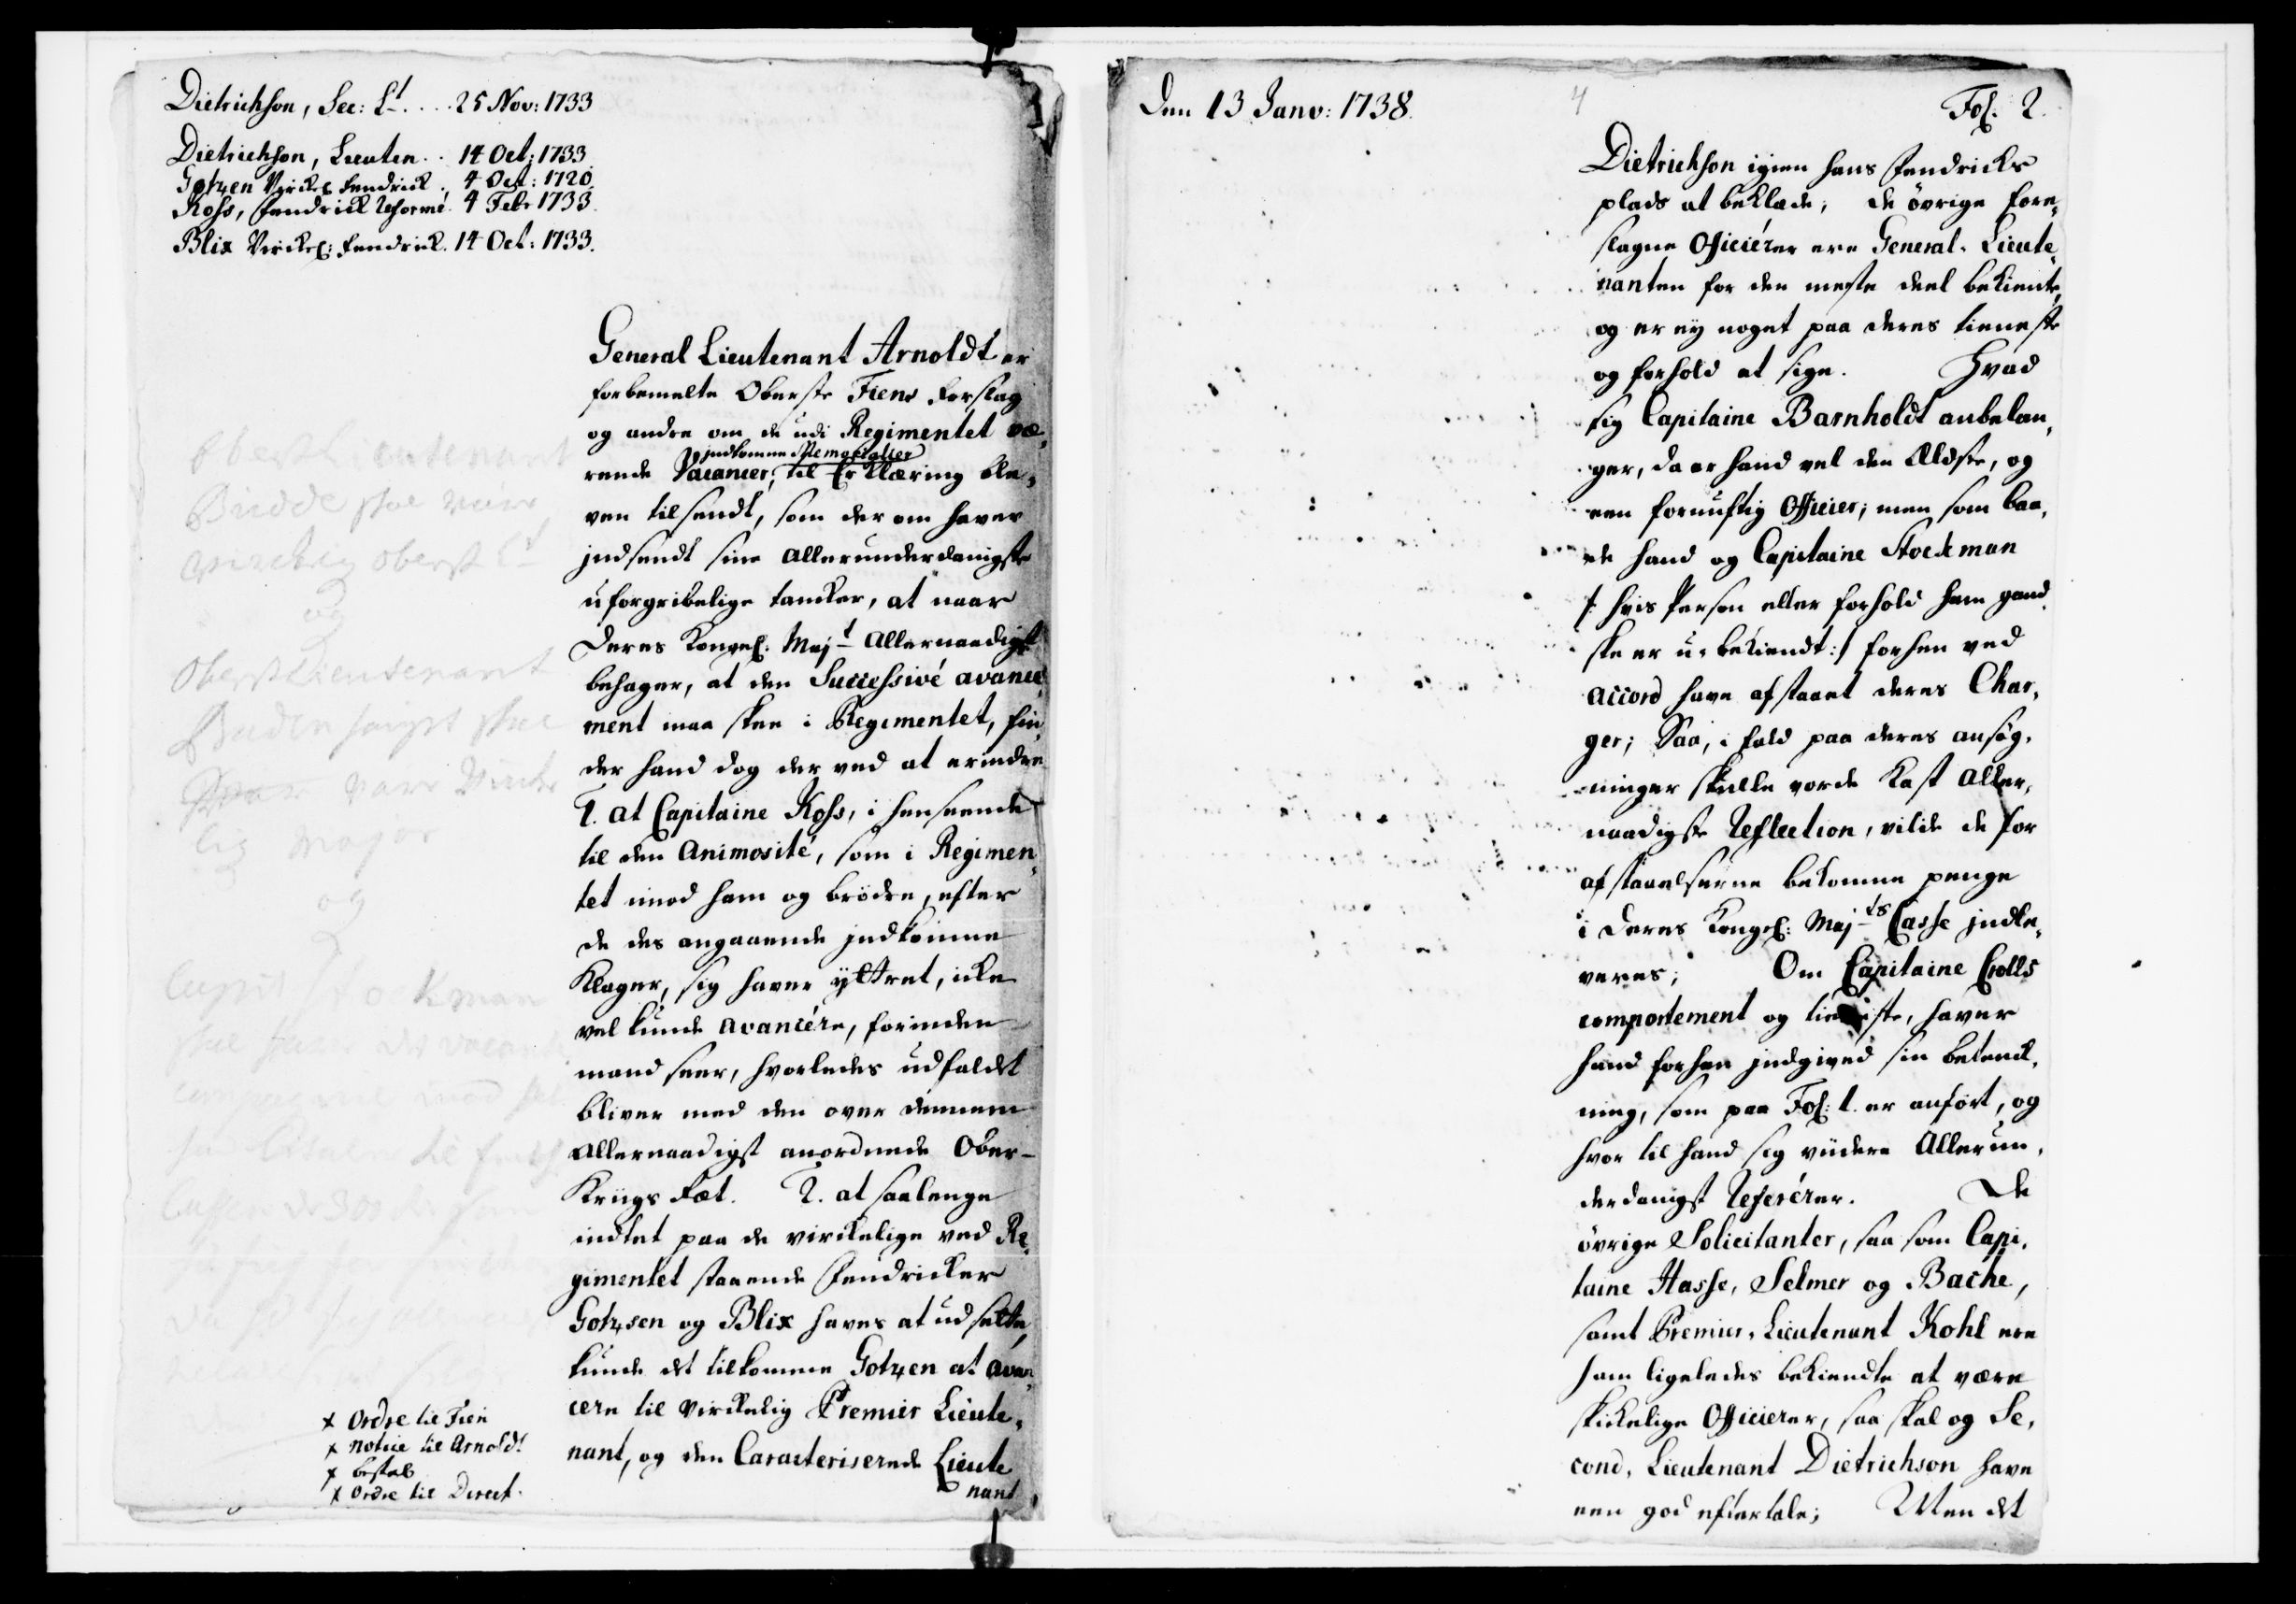 Dietrichson, Sec: Lt. . . . 25 Nov: 1733
Dietrichson, Lieuten . . 14 Oct: 1733
Gotzen Virckel Fendrick . 4 Oct: 1720.
Koss, Fendrick Reformé. 4 Febr 1733.
Blix Virckel: Fendrick. 14 Oct: 1733.
General Lieutenant Arnoldt er
forbemelte Oberste Fiens Forslag
og andre om de udi Regimentet væ,
indkomne Memorialier
rende Vacancer, til Erklæring ble,
ven tilsendt, som der om haver
jndsendt sine allerunderdanigste
uforgribelige tancker, at naar
Deres Kongel: Majt allernaadigst
behager, at den Successivé avance,
ment maa skee i Regimentet, fin,
der hand dog der ved at erindre
1. at Capitaine Koss, i henseende
til den Animosité, som i Regimen,
tet imod ham og brödre, efter
de des angaaende jndkomne
Klager, sig haver ÿttret, icke
vel kunde avancére, forinden
mand seer, hvorledes udfaldet
bliver med den over dennem
allernaadigst anordnede Ober-
Kriigs Ræt. 2. at saalenge
indtet paa de virckelige ved Re,
gimentet staaende Fendricker
Gotzsen og Blix haves at udsette,
kunde det tilkomme Gotzen at avan,
cere til virckelig Premier Lieute,
nant, og den Caracteriserede Lieute
nant
Oberst Lieutenant
Budde skal være
virckelig Oberst Lt
og
Oberst Lieutenant
skal
være Virke
lig Major
og
Capit Stockman
skal have det vacante
x Ordre til Fien
x Notice til Arnoldt
x bestal
x Ordre til Direct.
Den 13 Janv: 1738.
4
Fol. 2.
Dietrichson igien hans Fendricks
plads at beklæde; de övrige fore,
slagne Officiérer ere General-Lieute,
nanten for den meste deel bekiente,
og er ey noget paa deres tieneste
og forhold at sige. Hvad
sig Capitaine Barnholdt anbelan,
ger, da er hand vel den Ældste, og
een fornuftig Officier; men som baa,
de hand og Capitaine Stockman
/: hvis Person eller forhold ham gand,
ske er u-bekiendt :/ forhen ved
accord have afstaaet deres Char,
ger; Saa, i fald paa deres ansög,
ninger skulle vorde kast Aller,
naadigste Reflection, vilde de for
afstaaelserne bekomne penge
i Deres Kongel: Majts Casse jndle,
veres; Om Capitaine Crolls
comportement og tieneste, haver
hand forhen jndgived sin betenck,
ning, som paa Fol: 1. er anfört, og
hvor til hand sig viidere Allerun,
derdanigst Referérer. De
övrige Solicitanter, saa som Capi,
taine Hasse, Selmer og Bache,
samt Premier-Lieutenant Kohl ere
ham ligeledes bekiendte at være
skickelige Officierer, saa skal og Se,
cond-Lieutenant Dietrichson have
een god eftertale; Men det